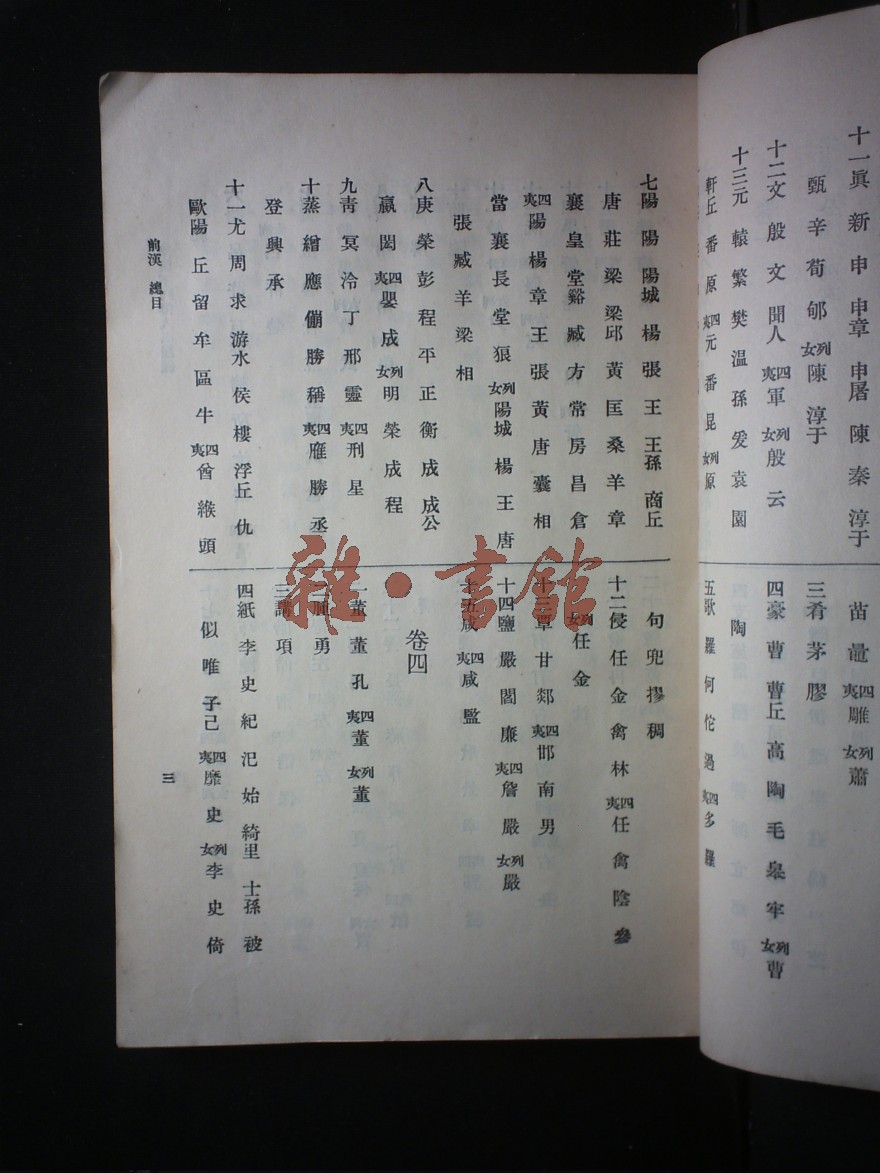 十一眞 新 申 申章 申屠 陳 秦 淳于
甄 辛 荀 郇 列女 陳 淳于
十二文 殷 文 聞人 四夷 軍 列女 殷 云
十三元 轅 繁 樊 温 孫 爰 袁 園
軒丘 番 原 四夷 元 番 昆 列女 原
苗 鼂 四夷 雕 列女 蕭
三肴 茅 膠
四豪 曹 曹丘 高 陶 毛 皋 牢 列女 曹
陶
五歌 羅 何 佗 過 四夷 多 羅
七陽 陽 陽城 楊 張 王 王孫 商丘
唐 莊 梁 梁邱 黃 匡 桑 羊 章
襄 皇 堂谿 臧 方 常 房 昌 倉
四夷 陽 楊 章 王 張 黃 唐 囊 相
當 襄 長 堂 狼 列女 陽城 楊 王 唐
張 臧 羊 梁 相
八庚 榮 彭 程 平 正 衡 成 成公
嬴 閎 四夷 嬰 成 列女 明 榮 成 程
九靑 冥 泠 丁 邢 靈 四夷 刑 星
十蒸 繒 應 倗 勝 稱 四夷 雁 勝 丞
登 興 承
十一尤 周 求 游水 侯 樓 浮丘 仇
歐陽 丘 留 牟 區 牛 四夷 酋 緱 頭
句 兜 摎 稠
十二侵 任 金 禽 林 四夷 任 禽 陰 參
列女 任 金
十三覃 甘 郯 四夷 邯 南 男
十四鹽 嚴 閻 廉 四夷 詹 嚴 列女 嚴
十五咸 四夷 咸 監
卷四
一董 董 孔 四夷 董 列女 董
勇
三講 項
四紙 李 史 紀 汜 始 綺里 士孫 被
似 唯 子己 四夷 靡 史 列女 李 史 倚
前漢 總目
三
雜·書館